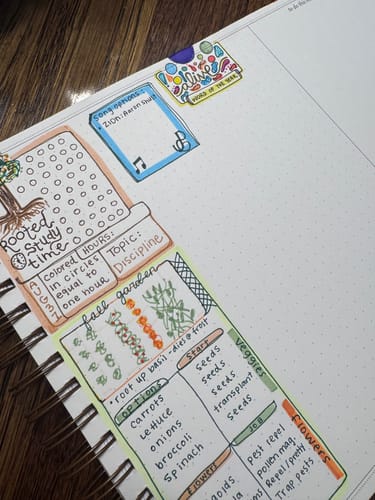 to do this
Alive
WORD OF THE YEAR
Song options:
• ZION: Aaron Shust
Rooted
Study
time
Colored
in circles
equal to
one hour
HOURS:
Topic:
Discipline
fall garden
• root up basil - died @ frost
options
carrots
lettuce
onions
broccoli
spinach
start
seeds
seeds
seeds
transplant
seeds
veggies
flowers
JOB
pest repel
pollen mag.
Repel/pretty
Trap pests
flowers